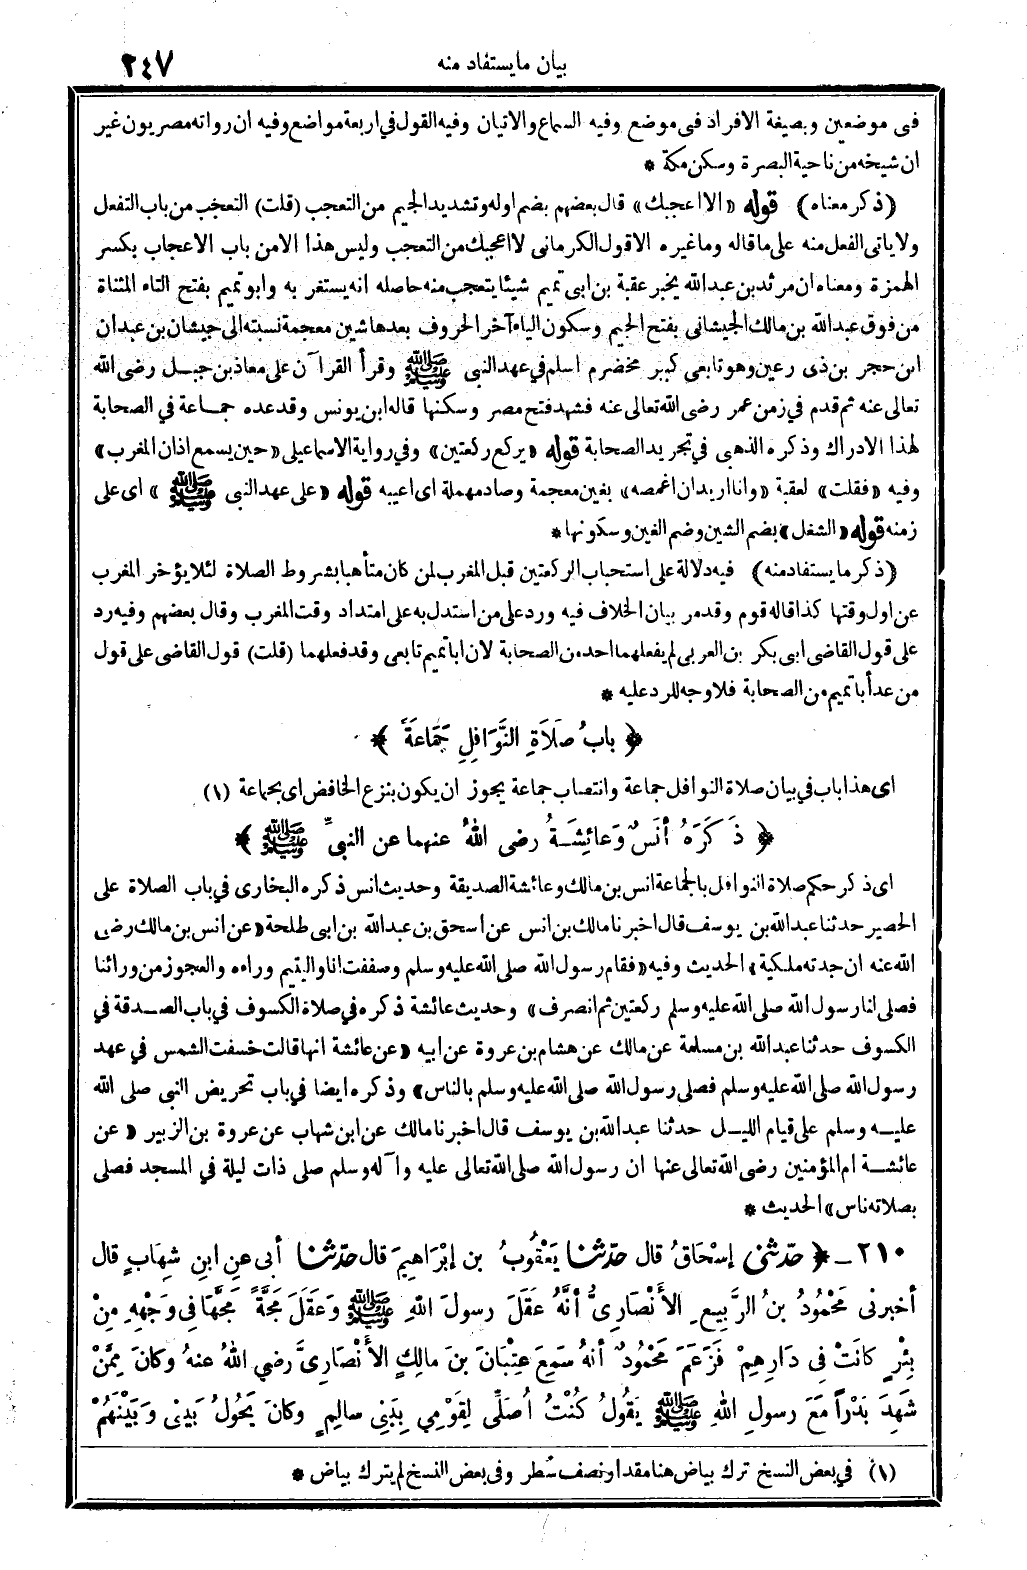 بيان ما يستفاد منه
٢٤٧
فى موضعين وبصيغة الافراد فى موضع وفيه السماع والاتيان وفيه القول فى اربعة مواضع وفيه ان رواته مصريون غير
ان شيخه من ناحية البصرة وسكن مكة *
(ذكر معناه) قوله «الا اعجبك» قال بعضهم بضم اوله وتشديد الجيم من التعجب (قلت) التعجب من باب التفعل
ولا ياتى الفعل منه على ما قاله وما غيره الا قول الكرمانى لا اعجبك من التعجب وليس هذا الا من باب الاعجاب بكسر
الهمزة ومعناه ان مرثد بن عبد الله يخبر عقبة بن ابى تميم شيئا يتعجب منه حاصله انه يستغر به وابو تميم بفتح التاء المثناة
من فوق عبد الله بن مالك الجيشانى بفتح الجيم وسكون الياء آخر الحروف بعدها شين معجمة نسبته الى جيشان بن عبدان
ابن حجر بن ذى رعين وهو تابعى كبير مخضرم اسلم فى عهد النبى ﷺ وقرأ القرآن على معاذ بن جبل رضى الله
تعالى عنه ثم قدم فى زمن عمر رضى الله تعالى عنه فشهد فتح مصر وسكنها قاله ابن يونس وقد عده جماعة في الصحابة
لهذا الادراك وذكره الذهبى فى تجريد الصحابة قوله «يركع ركعتين» وفى رواية الاسماعيلى «حين يسمع اذان المغرب»
وفيه «فقلت» لعقبة «وانا اريد ان اغمصه» بغين معجمة وصاد مهملة اى اعيبه قوله «على عهد النبى ﷺ» اى على
زمنه قوله «الشغل» بضم الشين وضم الغين وسكونها *
(ذكر ما يستفاد منه) فيه دلالة على استحباب الركعتين قبل المغرب لمن كان متأهبا بشروط الصلاة لئلا يؤخر المغرب
عن اول وقتها كذا قاله قوم وقد مر بيان الخلاف فيه ورد على من استدل به على امتداد وقت المغرب وقال بعضهم وفيه رد
على قول القاضى ابى بكر بن العربى لم يفعلهما احد من الصحابة لان ابا تميم تابعى وقد فعلهما (قلت) قول القاضى على قول
من عد أبا تميم من الصحابة فلا وجه للرد عليه *
﴿ بابُ صَلَاةِ النَّوَافِلِ جَمَاعَةً ﴾
اى هذا باب فى بيان صلاة النوافل جماعة وانتصاب جماعة يجوز ان يكون بنزع الخافض اى بجماعة (١)
﴿ ذَكَرَهُ أنَسٌ وَعائِشَةُ رضى اللهُ عنهما عن النبىِّ ﷺ ﴾
اى ذكر حكم صلاة النوافل بالجماعة انس بن مالك وعائشة الصديقة وحديث انس ذكره البخارى فى باب الصلاة على
الحصير حدثنا عبد الله بن يوسف قال اخبرنا مالك بن انس عن اسحق بن عبد الله بن ابى طلحة «عن انس بن مالك رضى
الله عنه ان جدته مليكية» الحديث وفيه «فقام رسول الله صلى الله عليه وسلم وصففت انا واليتيم وراءه والعجوز من ورائنا
فصلى لنا رسول الله صلى الله عليه وسلم ركعتين ثم انصرف» وحديث عائشة ذكره فى صلاة الكسوف فى باب الصدقة فى
الكسوف حدثنا عبد الله بن مسلمة عن مالك عن هشام بن عروة عن ابيه «عن عائشة انها قالت خسفت الشمس فى عهد
رسول الله صلى الله عليه وسلم فصلى رسول الله صلى الله عليه وسلم بالناس» وذكره ايضا فى باب تحريض النبى صلى الله
عليه وسلم على قيام الليل حدثنا عبد الله بن يوسف قال اخبرنا مالك عن ابن شهاب عن عروة بن الزبير «عن
عائشة ام المؤمنين رضى الله تعالى عنها ان رسول الله صلى الله تعالى عليه وآله وسلم صلى ذات ليلة فى المسجد فصلى
بصلاته ناس» الحديث *
٢١٠ ـ ﴿ حدّثنى إسْحَاقُ قال حدّثنا يَعْقُوبُ بن إبْرَاهِيمَ قال حدّثنا أبى عنِ ابنِ شِهَابٍ قال
أخبرنى مَحْمُودُ بنُ الرَّبيعِ الأنْصَارِىُّ أنَّهُ عَقَلَ رسولَ اللهِ ﷺ وَعَقَلَ مَجَّةً مَجَّهَا فى وَجْهِهِ مِنْ
بِئْرٍ كانَتْ فِى دَارِهِمْ فَزَعَمَ مَحْمُودٌ أنهُ سَمِعَ عِتْبَانَ بنَ مالِكٍ الأنْصَارِىَّ رضي اللهُ عنهُ وكانَ مِمَّنْ
شَهِدَ بَدْراً مَعَ رسولِ اللهِ ﷺ يَقُولُ كُنْتُ أُصَلِّى لِقَوْمِي بِبَنِى سالِمٍ وكانَ يَحُولُ بَيْنِى وَبَيْنَهُمْ
(١) فى بعض النسخ ترك بياض هنا مقدار نصف سطر وفى بعض النسخ لم يترك بياض *